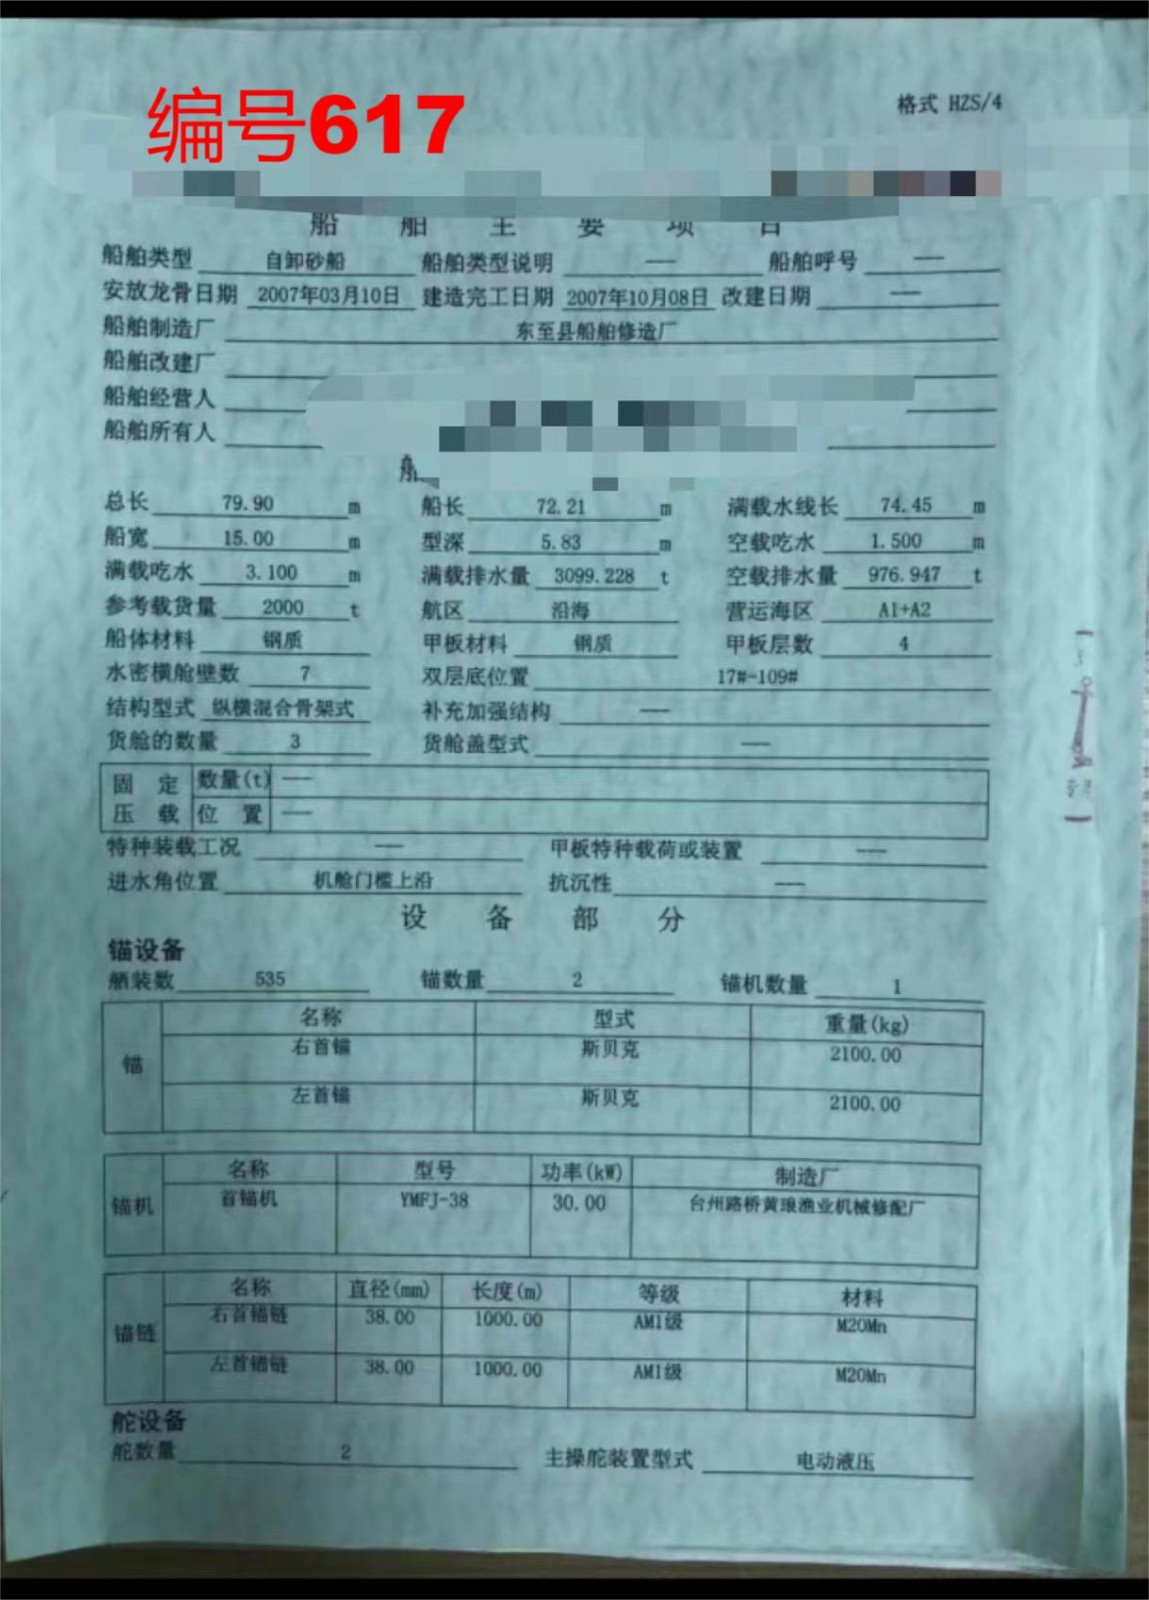 编号617
格式 HZS/4
船舶主要项目
船舶类型 自卸砂船 船舶类型说明 — 船舶呼号 —
安放龙骨日期 2007年03月10日 建造完工日期 2007年10月08日 改建日期 —
船舶制造厂 东至县船舶修造厂
船舶改建厂
船舶经营人
船舶所有人
船
总长 79.90 m 船长 72.21 m 满载水线长 74.45 m
船宽 15.00 m 型深 5.83 m 空载吃水 1.500 m
满载吃水 3.100 m 满载排水量 3099.228 t 空载排水量 976.947 t
参考载货量 2000 t 航区 沿海 营运海区 A1+A2
船体材料 钢质 甲板材料 钢质 甲板层数 4
水密横舱壁数 7 双层底位置 17#-109#
结构型式 纵横混合骨架式 补充加强结构 —
货舱的数量 3 货舱盖型式 —
固定 数量(t) —
压载 位置 —
特种装载工况 — 甲板特种载荷或装置 —
进水角位置 机舱门槛上沿 抗沉性 —
设备部分
锚设备
舾装数 535 锚数量 2 锚机数量 1
名称 型式 重量(kg)
锚 右首锚 斯贝克 2100.00
左首锚 斯贝克 2100.00
名称 型号 功率(kW) 制造厂
锚机 首锚机 YMFJ-38 30.00 台州路桥黄琅渔业机械修配厂
名称 直径(mm) 长度(m) 等级 材料
锚链 右首锚链 38.00 1000.00 AM1级 M20Mn
左首锚链 38.00 1000.00 AM1级 M20Mn
舵设备
舵数量 2 主操舵装置型式 电动液压
专用